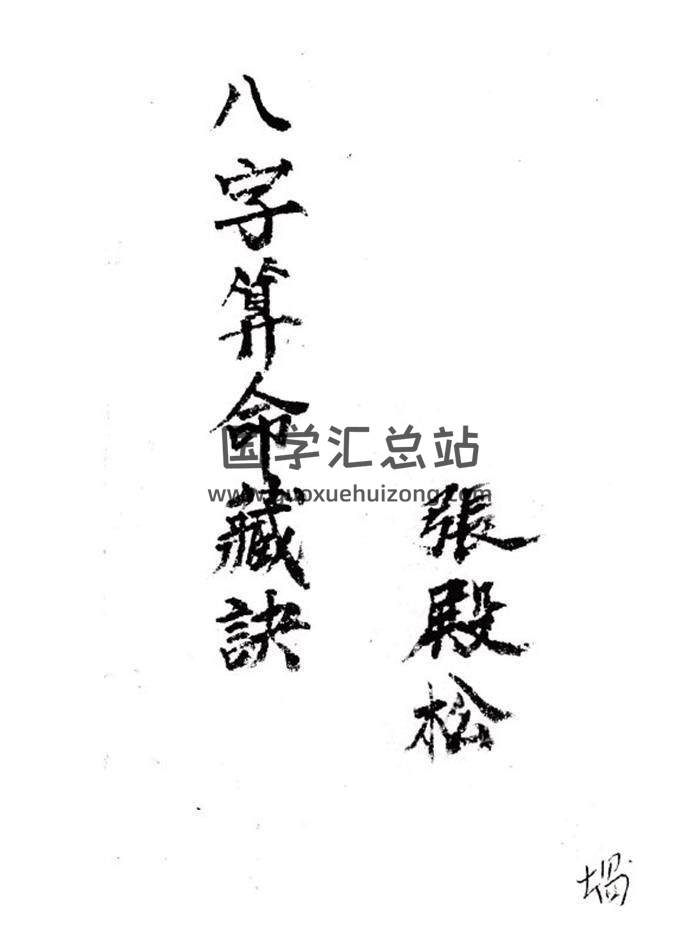 八字算命藏訣
張殿松
国学汇总站
www.guoxuehuizong.com